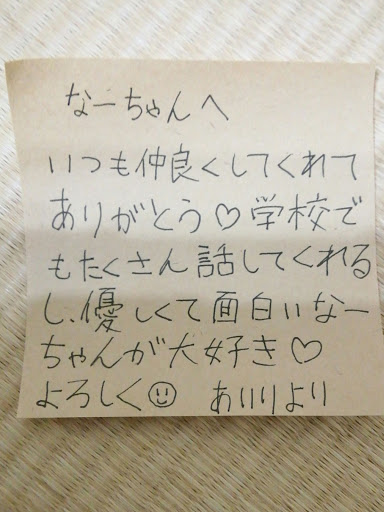 なーちゃんへ
いつも仲良くしてくれて
ありがとう♡学校で
もたくさん話してくれる
し、優しくて面白いなー
ちゃんが大好き♡
よろしく☺ あいりより